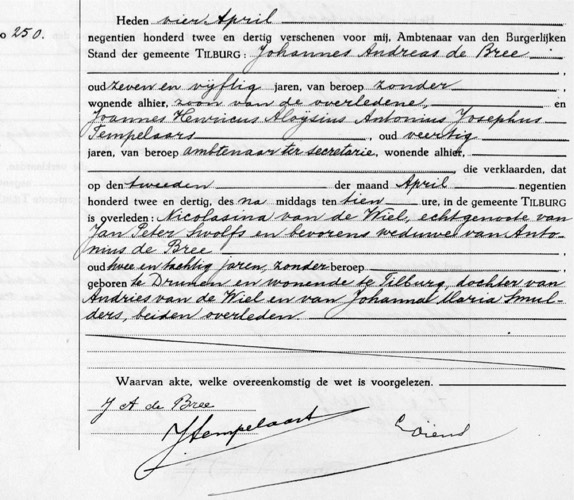 Heden vier April
o 250. negentien honderd twee en dertig verschenen voor mij, Ambtenaar van den Burgerlijken
Stand der gemeente TILBURG: Johannes Andreas de Bree
oud zeven en vijftig jaren, van beroep zonder
wonende alhier, zoon van de overledene, en
Joannes Henricus Aloÿsius Antonius Josephus
Tempelaars, oud veertig
jaren, van beroep ambtenaar ter secretarie, wonende alhier,
die verklaarden, dat
op den tweeden der maand April negentien
honderd twee en dertig, des na middags ten tien ure, in de gemeente TILBURG
is overleden: Nicolasina van de Wiel, echtgenoote van
Jan Peter Swolfs en bevorens weduwe van Anto-
nius de Bree
oud twee en tachtig jaren, zonder beroep
geboren te Drunen en wonende te Tilburg, dochter van
Andries van de Wiel en van Johanna Maria Smul-
ders, beiden overleden.
Waarvan akte, welke overeenkomstig de wet is voorgelezen.
J A de Bree
JTempelaars